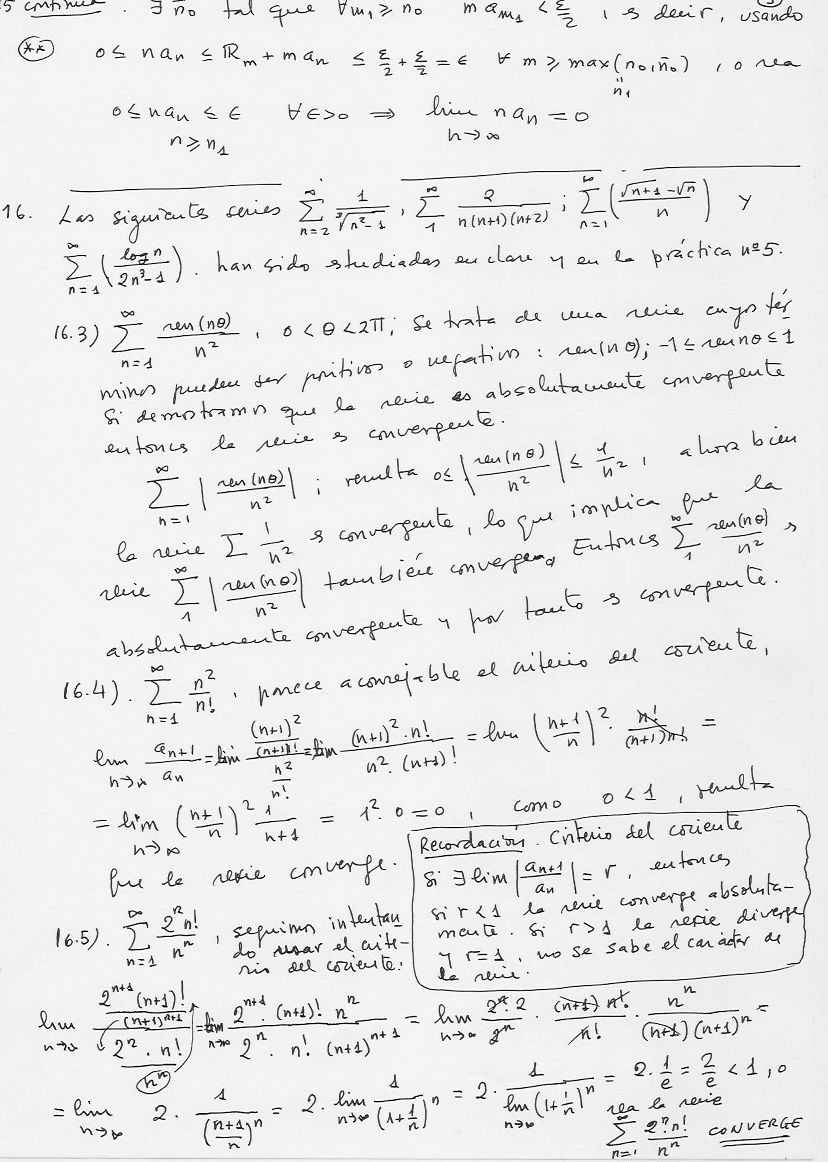 continua. ∃ n̄₀ tal que ∀m₁ ≥ n₀ m a_m₁ < ε/2, es decir, usando
(**) 0 ≤ n aₙ ≤ ℝₘ + m aₙ ≤ ε/2 + ε/2 = ϵ ∀ m ≥ max(n₀, n̄₀), o sea
n₁
0 ≤ n aₙ ≤ ϵ ∀ϵ>0 ⟹ lim n aₙ = 0
n ≥ n₁ n→∞
16. Las siguientes series ∑_{n=2}^∞ 1/∛(n²-1), ∑_1^∞ 2/(n(n+1)(n+2)); ∑_{n=1}^∞ ((√(n+1) - √n)/n) y
∑_{n=1}^∞ (log n/(2n³-1)). han sido estudiadas en clase y en la práctica nº 5.
16.3) ∑_{n=1}^∞ sen(nθ)/n², 0 < θ < 2π; Se trata de una serie cuyos tér
minos pueden ser positivos o negativos: sen(nθ); -1 ≤ sen nθ ≤ 1
Si demostramos que la serie es absolutamente convergente
entonces la serie es convergente.
∑_{n=1}^∞ |sen(nθ)/n²|; resulta 0 ≤ |sen(nθ)/n²| ≤ 1/n², ahora bien
la serie ∑ 1/n² es convergente, lo que implica que la
serie ∑_1^∞ |sen(nθ)/n²| también converge. Entonces ∑_1^∞ sen(nθ)/n² es
absolutamente convergente y por tanto es convergente.
16.4). ∑_{n=1}^∞ n²/n!, parece aconsejable el criterio del cociente,
lim_{n→∞} a_{n+1}/aₙ = lim ((n+1)²/(n+1)!)/(n²/n!) = lim ((n+1)²·n!)/(n²·(n+1)!) = lim ((n+1)/n)² · n!/((n+1)n!) =
= lim_{n→∞} ((n+1)/n)² 1/(n+1) = 1²·0 = 0, como 0 < 1, resulta
que la serie converge.
Recordación. Criterio del cociente
Si ∃ lim |a_{n+1}/aₙ| = r, entonces
si r<1 la serie converge absoluta-
mente. Si r>1 la serie diverge
y r=1, no se sabe el carácter de
la serie.
16.5). ∑_{n=1}^∞ 2ⁿn!/nⁿ, seguimos intentan
do usar el crite-
rio del cociente:
lim_{n→∞} (2ⁿ⁺¹(n+1)!/(n+1)ⁿ⁺¹)/(2ⁿ·n!/nⁿ) = lim_{n→∞} (2ⁿ⁺¹·(n+1)! nⁿ)/(2ⁿ·n! (n+1)ⁿ⁺¹) = lim_{n→∞} (2ⁿ·2)/2ⁿ · ((n+1) n!)/n! · nⁿ/((n+1)(n+1)ⁿ) =
= lim_{n→∞} 2· 1/((n+1)/n)ⁿ = 2· lim_{n→∞} 1/(1+1/n)ⁿ = 2· 1/(lim_{n→∞} (1+1/n)ⁿ) = 2·1/e = 2/e < 1, o
sea la serie
∑_{n=1}^∞ 2ⁿn!/nⁿ CONVERGE